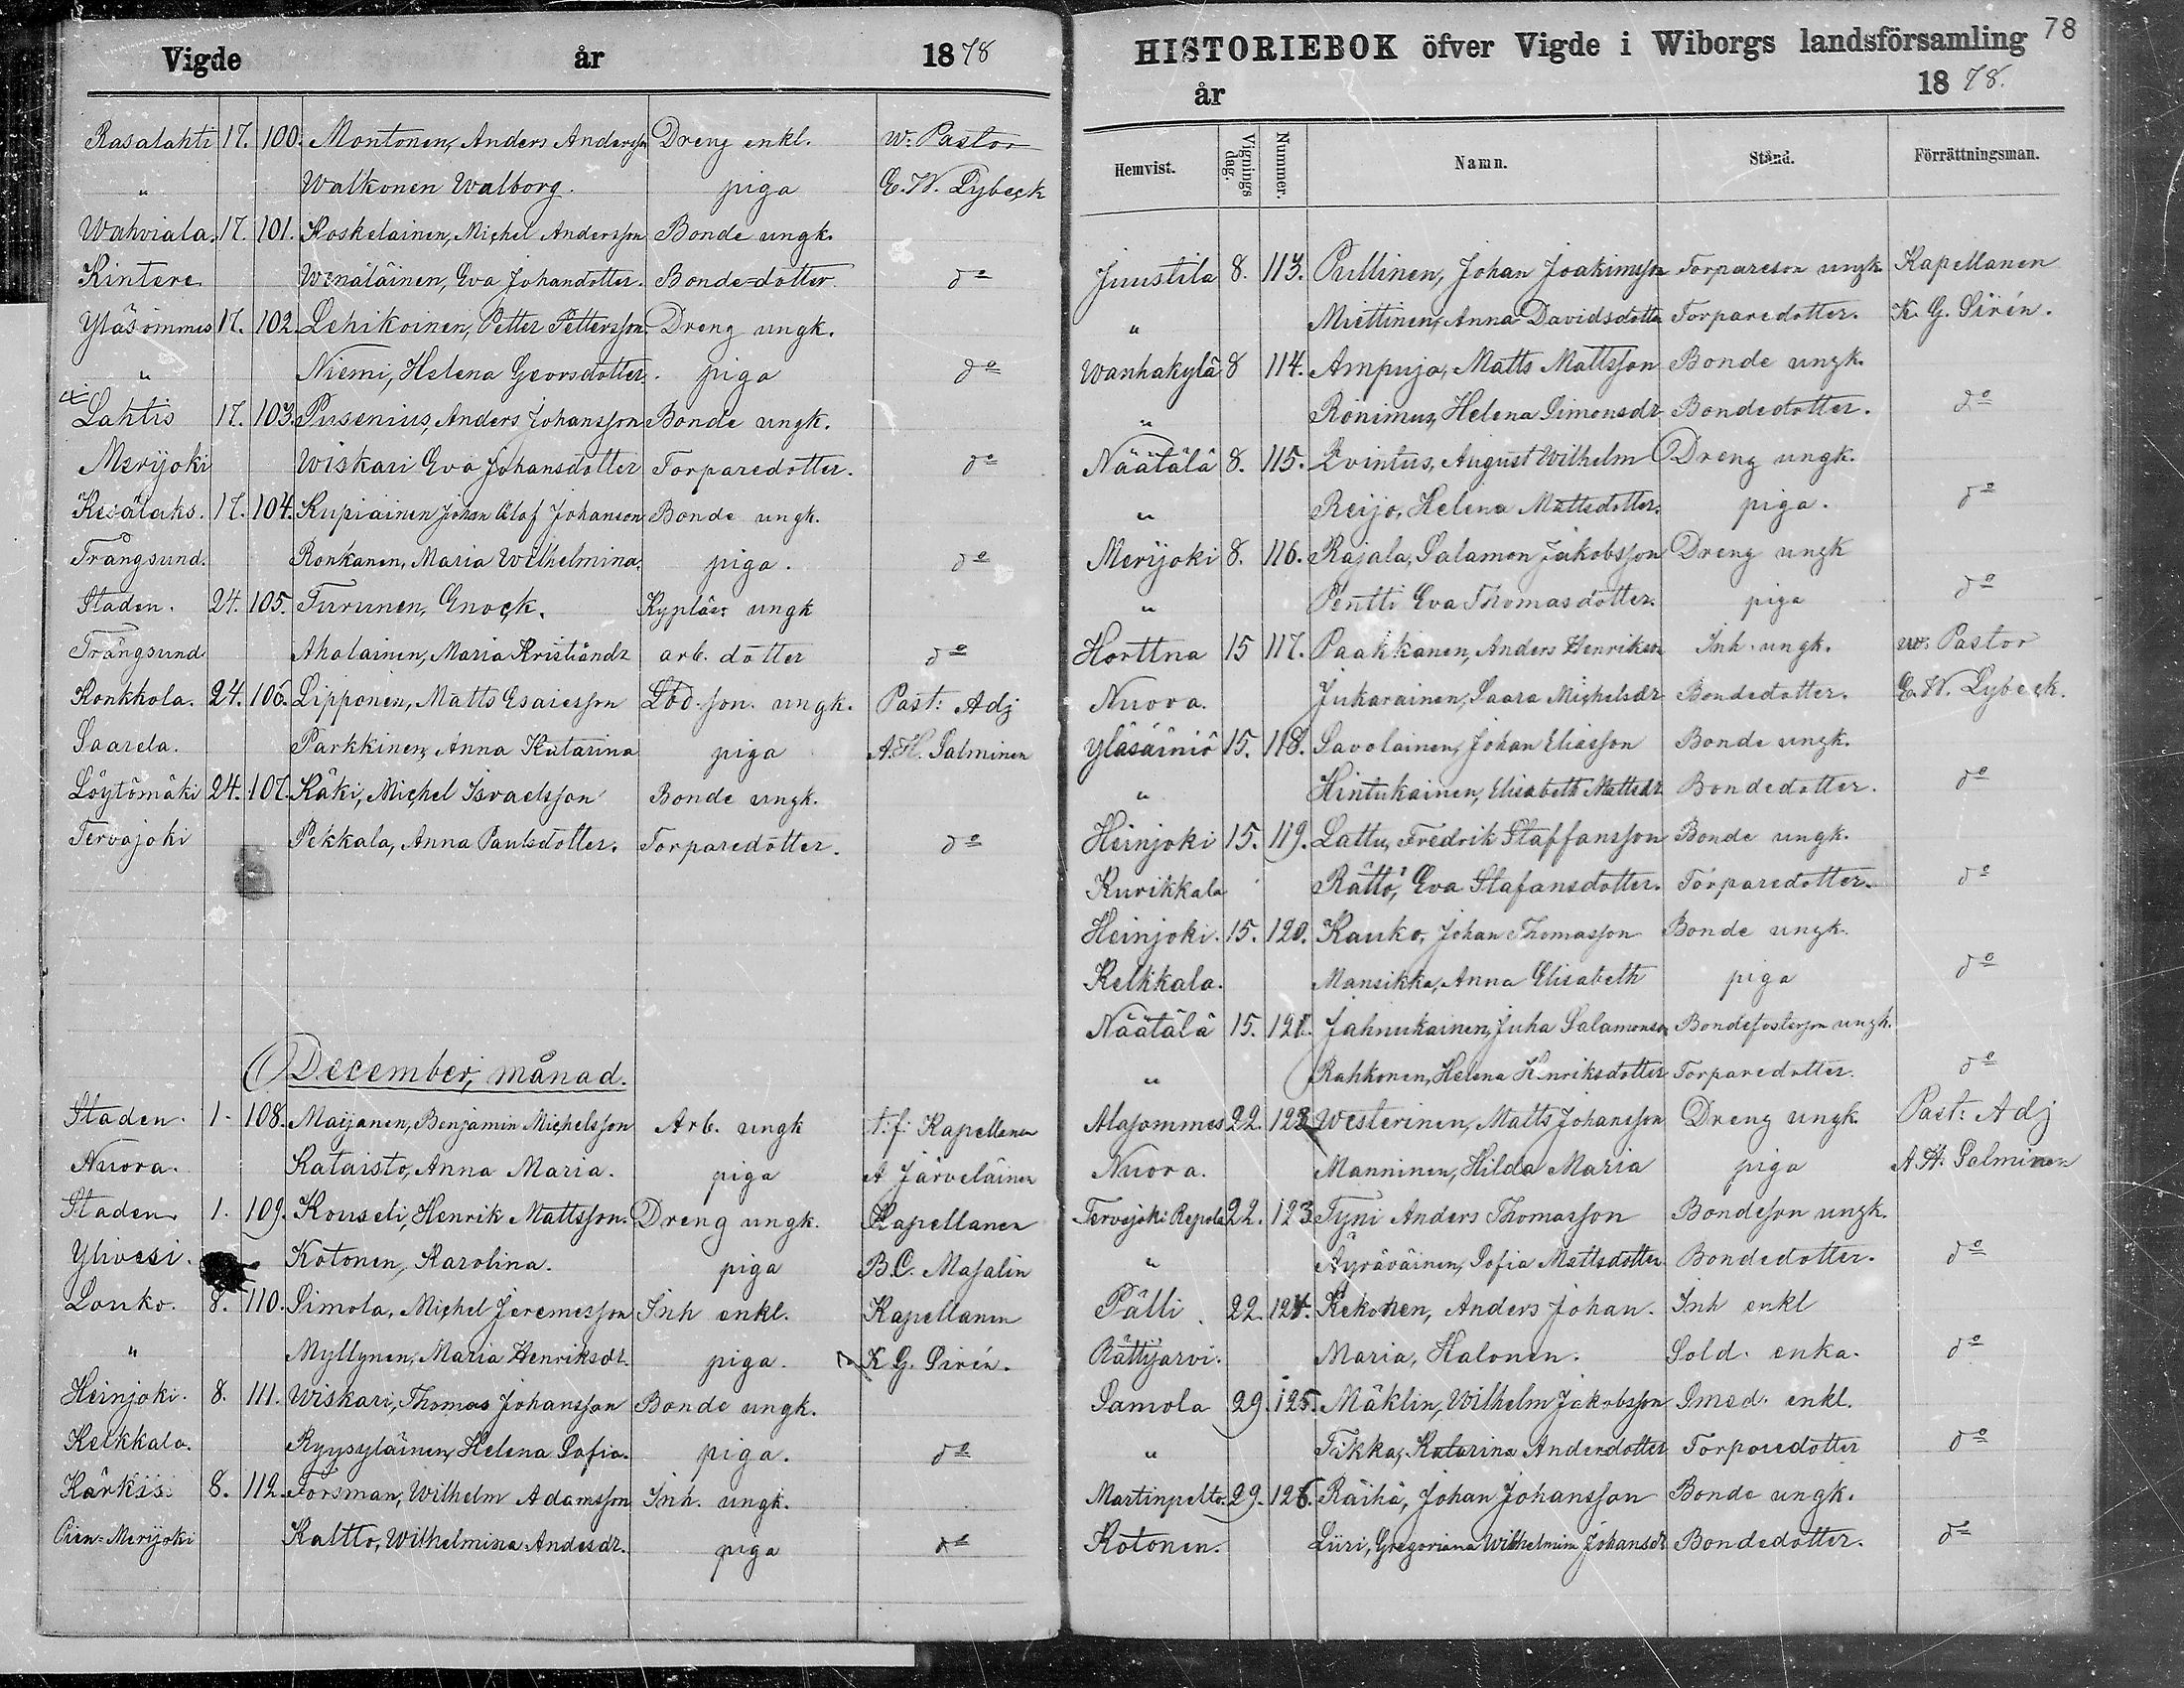 Vigde år 1878
Rasalahti 17. 100. Montonen, Anders Andersson Dreng enkl. w. Pastor
" Walkonen Walborg. piga E. W. Lybeck
Wahviala. 17. 101. Koskelainen, Michel Andersson Bonde ungk.
Kintere Wenäläinen, Eva Johandotter. Bonde=dotter. do
Yläsommes 17. 102. Lehikoinen, Petter Pettersson Dreng ungk.
" Niemi, Helena Georsdotter. piga do
Lahtis 17. 103. Pusenius, Anders Johansson Bonde ungk.
Merijoki Wiskari Eva Johansdotter Torparedotter. do
Kesälaks. 17. 104. Kupiainen Johan Olof Johanson Bonde ungk.
Trångsund. Ronkanen, Maria Wilhelmina. piga. do
Staden. 24. 105. Turunen, Enock. Kypläer ungk
Trångsund. Aholainen, Maria Kristiandr arb. dotter do
Konkkola. 24. 106. Lipponen, Matts Esaiesson Lod. son. ungk. Past: Adj
Saarela. Parkkinen, Anna Katarina piga A. H. Salminen
Löytömäki 24. 107. Käki, Michel Israelsson Bonde ungk.
Tervajoki Pekkala, Anna Paulsdotter. Torparedotter. do
December, månad.
Staden. 1. 108. Maijanen, Benjamin Michelsson Arb. ungk t.f. Kapellanen
Nuora. Kataisto, Anna Maria. piga A Järveläinen
Staden 1. 109. Kouseli, Henrik Mattsson. Dreng ungk. Kapellanen
Ylivesi. Kotonen, Karolina. piga B. C. Masalin
Louko. 8. 110. Simola, Michel Jeremesson Inh enkl. Kapellanen
" Myllynen, Maria Henriksdr. piga. K G. Sirén.
Heinjoki. 8. 111. Wiskari, Thomas Johansson Bonde ungk.
Kelkkala. Ryysyläinen, Helena Sofia. piga. do
Kärkis. 8. 112. Forsman, Wilhelm Adamsson Inh. ungk.
Pien=Merijoki Kaltto, Wilhelmina Andesdr. piga do
78
HISTORIEBOK öfver Vigde i Wiborgs landsförsamling
år 1878.
Hemvist. Vignings dag. Nummer. Namn. Stånd. Förrättningsman.
Juustila 8. 113. Pullinen, Johan Joakimsson Torpareson ungk Kapellanen
" Miettinen, Anna Davidsdotter Torparedotter. K. G. Sirén.
Wanhakylä 8 114. Ampuja, Matts Mattsson Bonde ungk.
" Ronimus, Helena Simonsdr Bondedotter. do
Näätälä 8. 115. Qvintus, August Wilhelm Dreng ungk.
" Reijo, Helena Mattsdotter. piga. do
Merijoki 8. 116. Rajala, Salamon Jakobsson Dreng ungk
" Pentti Eva Thomasdotter. piga do
Horttna 15 117. Paakkanen, Anders Henrikson Inh. ungk. w. Pastor
Nuora. Jukarainen, Saara Michelsdr Bondedotter. E. W. Lybeck.
Yläsäiniö 15. 118. Savolainen, Johan Eliasson Bonde ungk.
" Hintukainen, Elisabeth Mattsdr Bondedotter. do
Heinjoki 15. 119. Lattu, Fredrik Staffansson Bonde ungk.
Kurikkala Rättö, Eva Stafansdotter. Torparedotter. do
Heinjoki. 15. 120. Kauko, Johan Thomasson Bonde ungk.
Kelkkala. Mansikka, Anna Elisabeth piga do
Näätälä 15. 121. Jahnukainen, Juha Salamonson Bondefosterson ungk.
" Rahkonen, Helena Henriksdotter Torparedotter. do
Alasommes 22. 122 Westerinen, Matts Johansson Dreng ungk. Past: Adj
Nuora. Manninen, Hilda Maria piga A. H. Salminen
Tervajoki Repola 22. 123 Tyni Anders Thomasson Bondeson ungk.
" Äyräväinen, Sofia Mattsdotter Bondedotter. do
Pälli. 22. 124. Kekonen, Anders Johan. Inh enkl
Rättijarvi. Maria, Halonen. Sold. enka. do
Samola 29. 125. Mäklin, Wilhelm Jakobsson Smed. enkl.
" Tikka, Katarina Andersdotter Torparedotter do
Martinpelto. 29. 126. Räihä, Johan Johansson Bonde ungk.
Kotonen. Liiri, Gregoriana Wilhelmina Johansdr Bondedotter. do